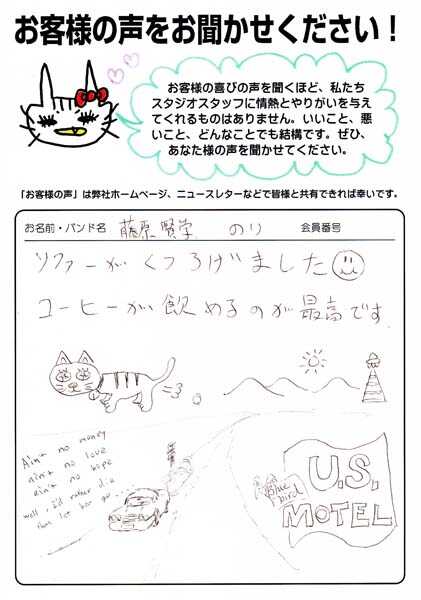 お客様の声をお聞かせください！
お客様の喜びの声を聞くほど、私たち
スタジオスタッフに情熱とやりがいを与え
てくれるものはありません。いいこと、悪
いこと、どんなことでも結構です。ぜひ、
あなた様の声を聞かせてください。
「お客様の声」は弊社ホームページ、ニュースレターなどで皆様と共有できれば幸いです。
お名前・バンド名 藤原 賢学 のり 会員番号
ソファーがくつろげました
コーヒーが飲めるのが最高です
Ain't no money
ain't no love
ain't no hope
well i'd rather die
than let her go
Blue
bird
U.S.
MOTEL